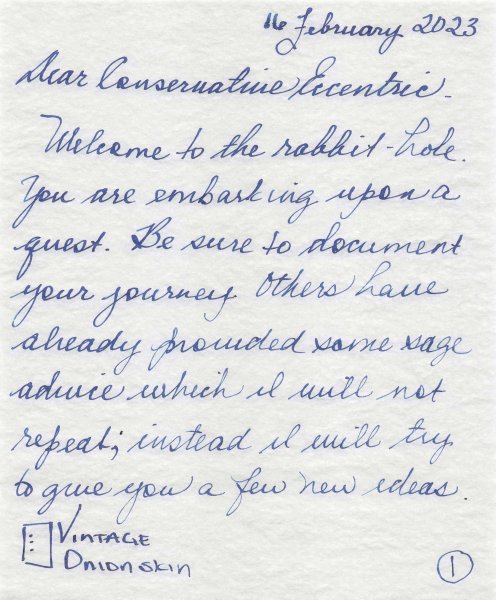 16 February 2023
Dear Conservative Eccentric.
Welcome to the rabbit-hole.
You are embarking upon a
quest. Be sure to document
your journey. Others have
already provided some sage
advice which I will not
repeat; instead I will try
to give you a few new ideas.
VINTAGE
ONIONSKIN
1